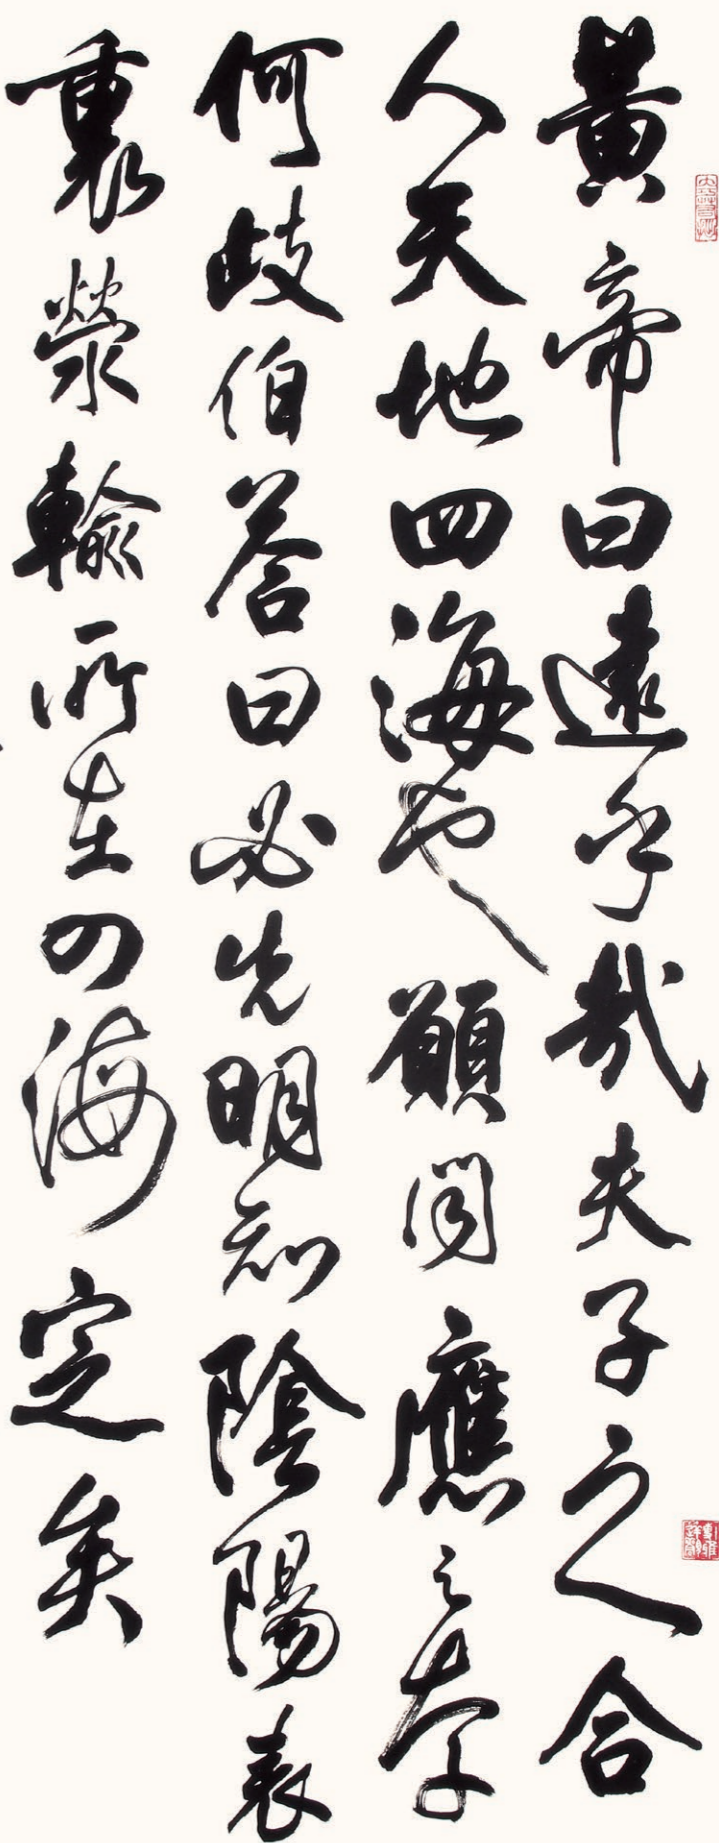 黄帝曰遠乎哉夫子之合
人天地四海也願聞應之奈
何歧伯答曰必先明知陰陽表
裏滎輸所在四海定矣